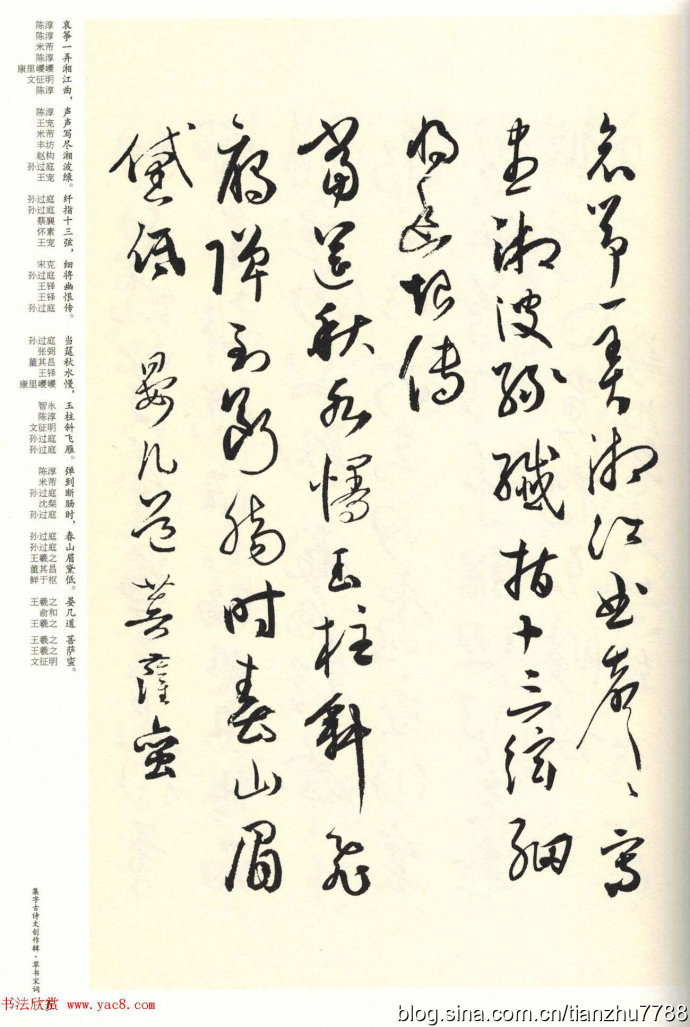 哀筝一弄湘江曲声〻写
尽湘波绿纤指十三弦细
将幽恨传
当筵秋水慢玉柱斜飞
雁弹到断肠时春山眉
黛低 晏几道菩萨蛮
哀筝一弄湘江曲，
陈淳 陈淳 米芾 陈淳 康里巎巎 文征明 陈淳
声声写尽湘波绿。
陈淳 王宠 米芾 丰坊 赵构 孙过庭 王宠
纤指十三弦，
孙过庭 孙过庭 蔡襄 怀素 王宠
细将幽恨传。
宋克 孙过庭 王铎 王铎 孙过庭
当筵秋水慢，
孙过庭 张弼 董其昌 王铎 康里巎巎
玉柱斜飞雁。
智永 陈淳 文征明 孙过庭 孙过庭
弹到断肠时，
陈淳 米芾 孙过庭 沈粲 孙过庭
春山眉黛低。
孙过庭 孙过庭 王羲之 董其昌 鲜于枢
晏几道
王羲之 俞和 王羲之
菩萨蛮。
王羲之 王羲之 文征明
集字古诗文创作辑·草书宋词
书法欣赏 www.yac8.com
blog.sina.com.cn/tianzhu7788